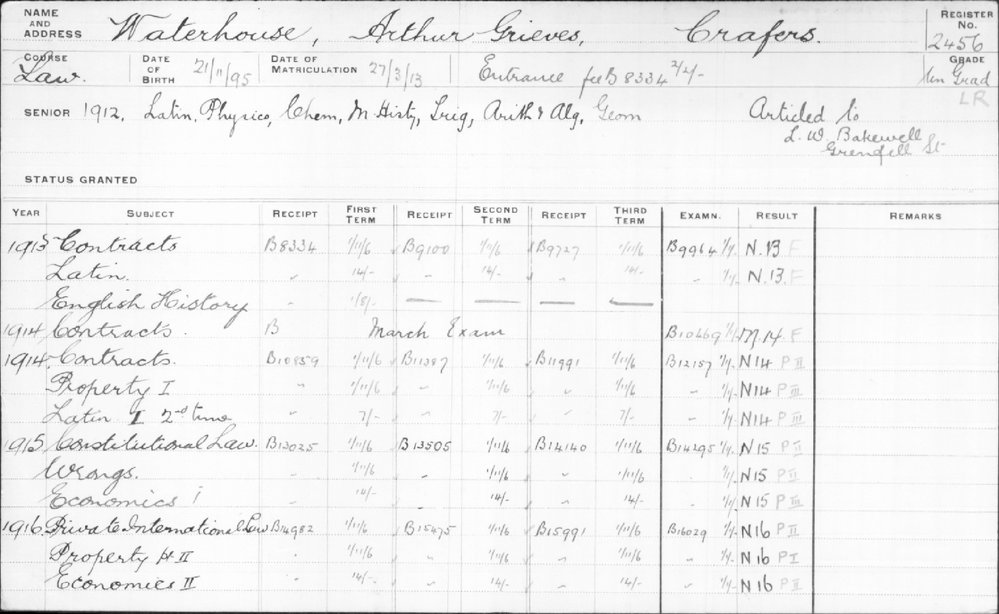 NAME AND ADDRESS Waterhouse, Arthur Grieves, Crafers. REGISTER No. 2456
COURSE Law. DATE OF BIRTH 21/11/95 DATE OF MATRICULATION 27/3/13 Entrance fee B8334 2/2/- GRADE Un Grad
LR
SENIOR 1912, Latin, Physics, Chem, M. Hist, Trig, Arith & Alg, Geom Articled to
L. W. Bakewell
Grenfell St
STATUS GRANTED
YEAR SUBJECT RECEIPT FIRST TERM RECEIPT SECOND TERM RECEIPT THIRD TERM EXAMN. RESULT REMARKS
1913 Contracts B8334 1/11/6 B9100 1/11/6 B9727 1/11/6 B9964 1/1/- N.13 F
Latin. " 14/- " 14/- " 14/- " 1/1/- N.13. F
English History " — — — —
1914 Contracts. B March Exam B10469 1/1/- M.14 F
1914 Contracts. B10859 1/11/6 B11387 1/11/6 B11991 1/11/6 B12157 1/1/- N14 P II
Property I " 1/11/6 " 1/11/6 " 1/11/6 " 1/1/- N14 P III
Latin I 2nd time " 7/- " 7/- " 7/- " 1/1/- N14 P III
1915 Constitutional Law. B13025 1/11/6 B13505 1/11/6 B14140 1/11/6 B14295 1/1/- N15 P II
Wrongs. " 1/11/6 " 1/11/6 " 1/11/6 " 1/1/- N15 P II
Economics I " 14/- " 14/- " 14/- " 1/1/- N15 P III
1916 Private International Law B14982 1/11/6 B15475 1/11/6 B15991 1/11/6 B16029 1/1/- N16 P II
Property II " 1/11/6 " 1/11/6 " 1/11/6 " 1/1/- N16 P I
Economics II " 14/- " 14/- " 14/- " 1/1/- N16 P II